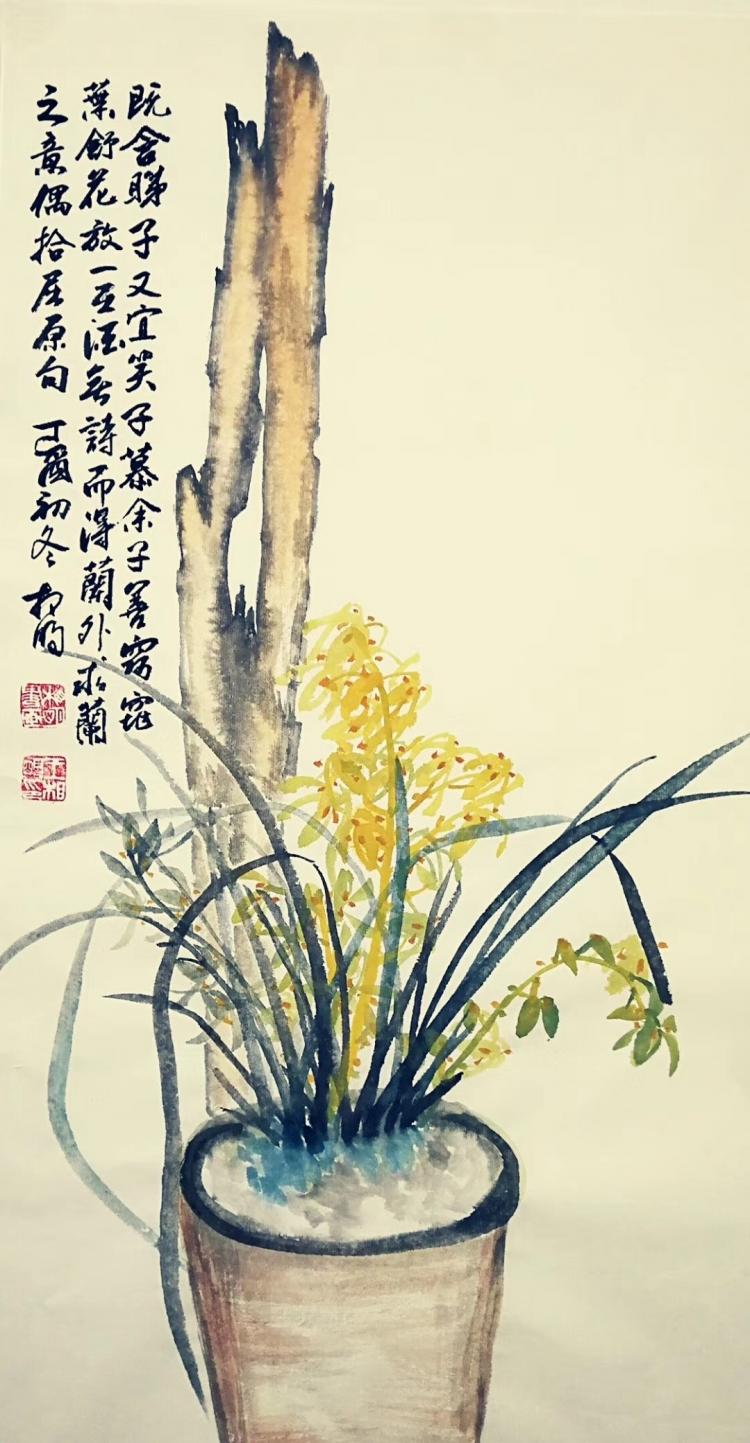 既舍睇子又宜笑子慕余子善窈窕
葉舒花放一酒無詩而得蘭外求蘭
之意偶拾屈原句 丁酉初冬